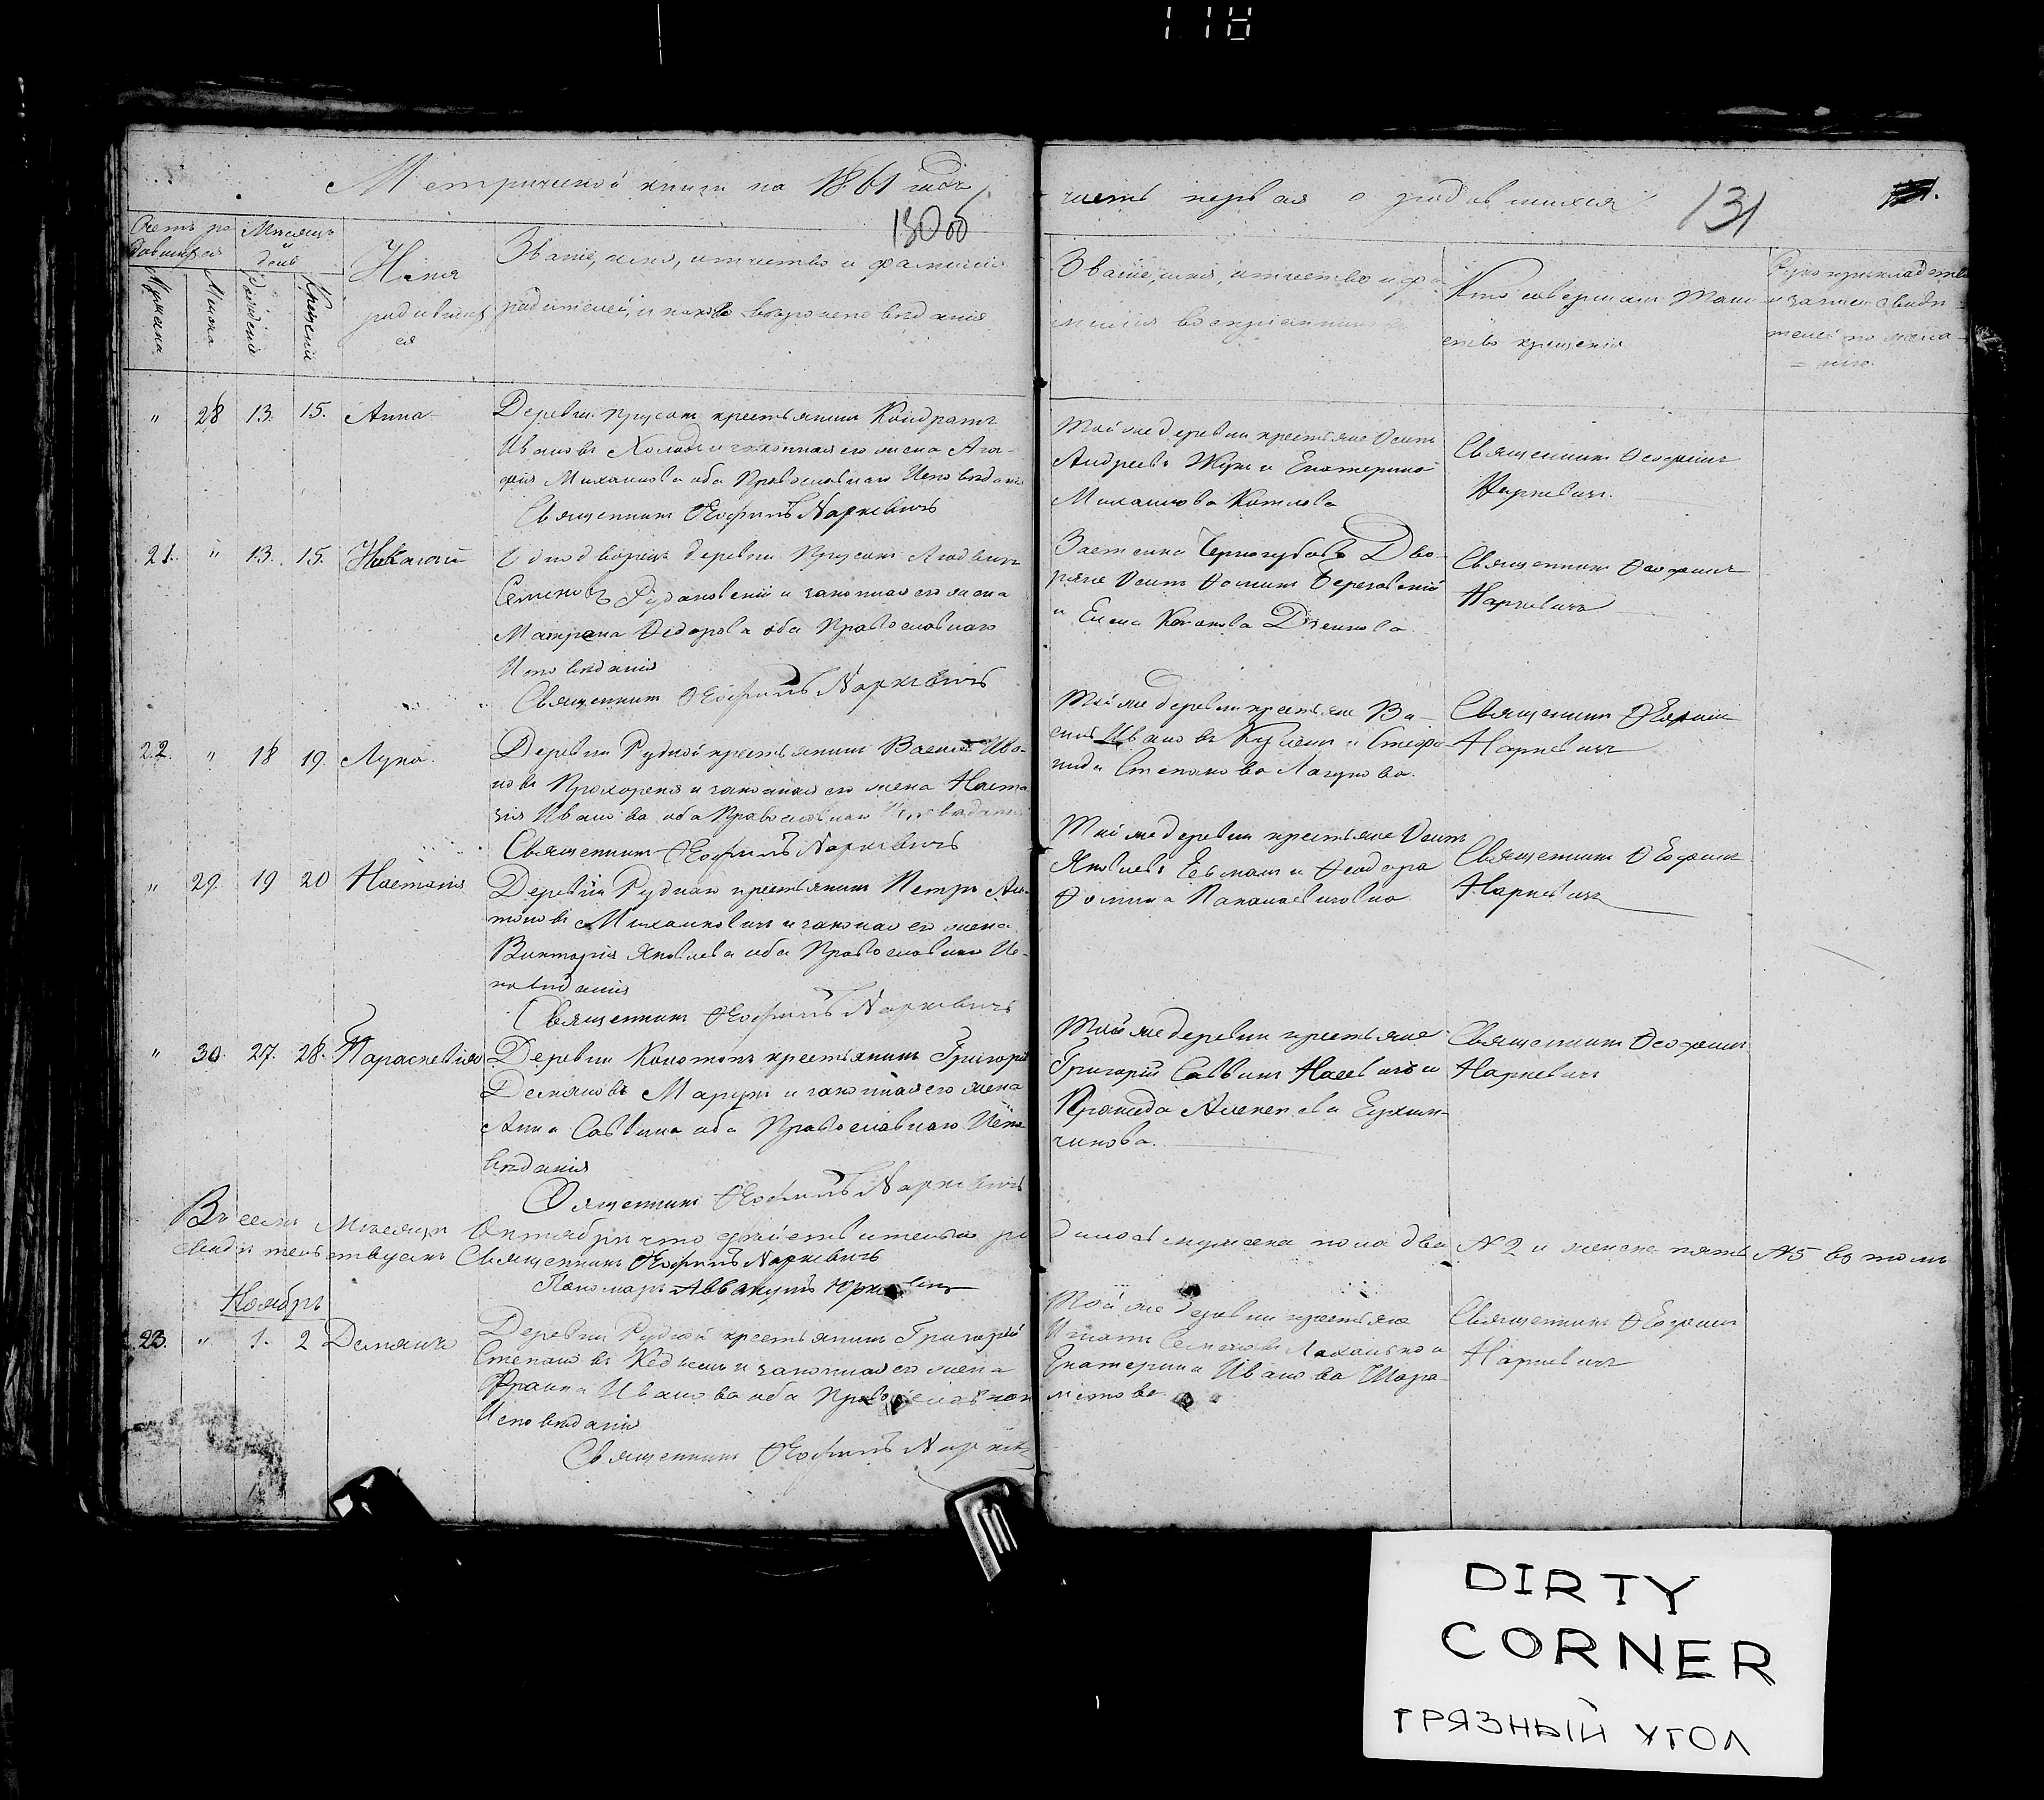 118
Метрической книги на 1861 годъ
130 об
часть первая о родившихся
131
Счетъ ро
дившихся
Мѣсяцъ
и
день
Мужеска
Женска
Рожденія
Крещенія
Имя
родивших
ся
Званіе, имя, отчество и фамилія
родителей, и какого вѣроисповѣданія
Званіе, имя, отчество и фа
милія воспріемниковъ
Кто совершалъ таин
ство крещенія
Рукоприкладство
свидѣ
телей по жела
= нію.
" 28 13. 15. Анна
Деревни Прусакъ крестьянинъ Кондратъ
Ивановъ и законная его жена Ага-
фія Михаилова оба Православнаго Исповѣданія
Священникъ Ѳеофилъ Наркевичъ
Той же деревни крестьяне Осипъ
Андреевъ Жукъ и Екатерина
Михаилова Котлова
Священникъ Ѳеофилъ
Наркевичъ.
21. " 13. 15. Николай
Однодворецъ деревни Прусакъ Людвигъ
Семеновъ и законная его жена
Матрона Ѳедорова оба Православнаго
Исповѣданія
Священникъ Ѳеофилъ Наркевичъ
Застѣнка Дво-
ряне Осипъ Ѳоминъ Березовскій
и Елена
Священникъ Ѳеофилъ
Наркевичъ
22. " 18 19. Лука.
Деревни Рудной крестьянинъ Василій Ива-
новъ Прохореня и законная его жена Наста
зія Иванова оба Православнаго Исповѣданія
Священникъ Ѳеофилъ Наркевичъ
Той же деревни крестьяне Ва-
силь Ивановъ и Стефа-
нида Степанова Лагунова.
Священникъ Ѳеофилъ
Наркевичъ
" 29. 19 20 Настазія
Деревни Рудной крестьянинъ Петръ Ан-
тоновъ Михалковичъ и законная его жена
Викторія Яковлева оба Православнаго Ис-
повѣданія
Священникъ Ѳеофилъ Наркевичъ
Той же деревни крестьяне Осипъ
Яковлевъ и Ѳеодора
Ѳомина
Священникъ Ѳеофилъ
Наркевичъ
" 30. 27. 28. Параскевія
Деревни Конотопъ крестьянинъ Григорій
Демяновъ и законная его жена
Анна Саввина оба Православнаго Испо
вѣданія
Священникъ Ѳеофилъ Наркевичъ
Той же деревни крестьяне
Григорій Саввинъ и
чикова.
Священникъ Ѳеофилъ
Наркевичъ
Въ семъ Мѣсяцѣ Октябрѣ что дѣйствительно ро
дилось мужеска пола два №2 и женска пять №5 въ томъ
свидѣтельствуемъ Священникъ Ѳеофилъ Наркевичъ
Пономарь Аввакумъ
Ноябрь
23. " 1. 2 Демянъ
Деревни Рудной крестьянинъ Григорій
Степановъ и законная его жена
Иванова оба Православнаго
Исповѣданія
Священникъ Ѳеофилъ Наркевичъ
Той же деревни крестьяне
Игнатъ Семеновъ и
Екатерина Иванова
Священникъ Ѳеофилъ
Наркевичъ
DIRTY
CORNER
ГРЯЗНЫЙ УГОЛ